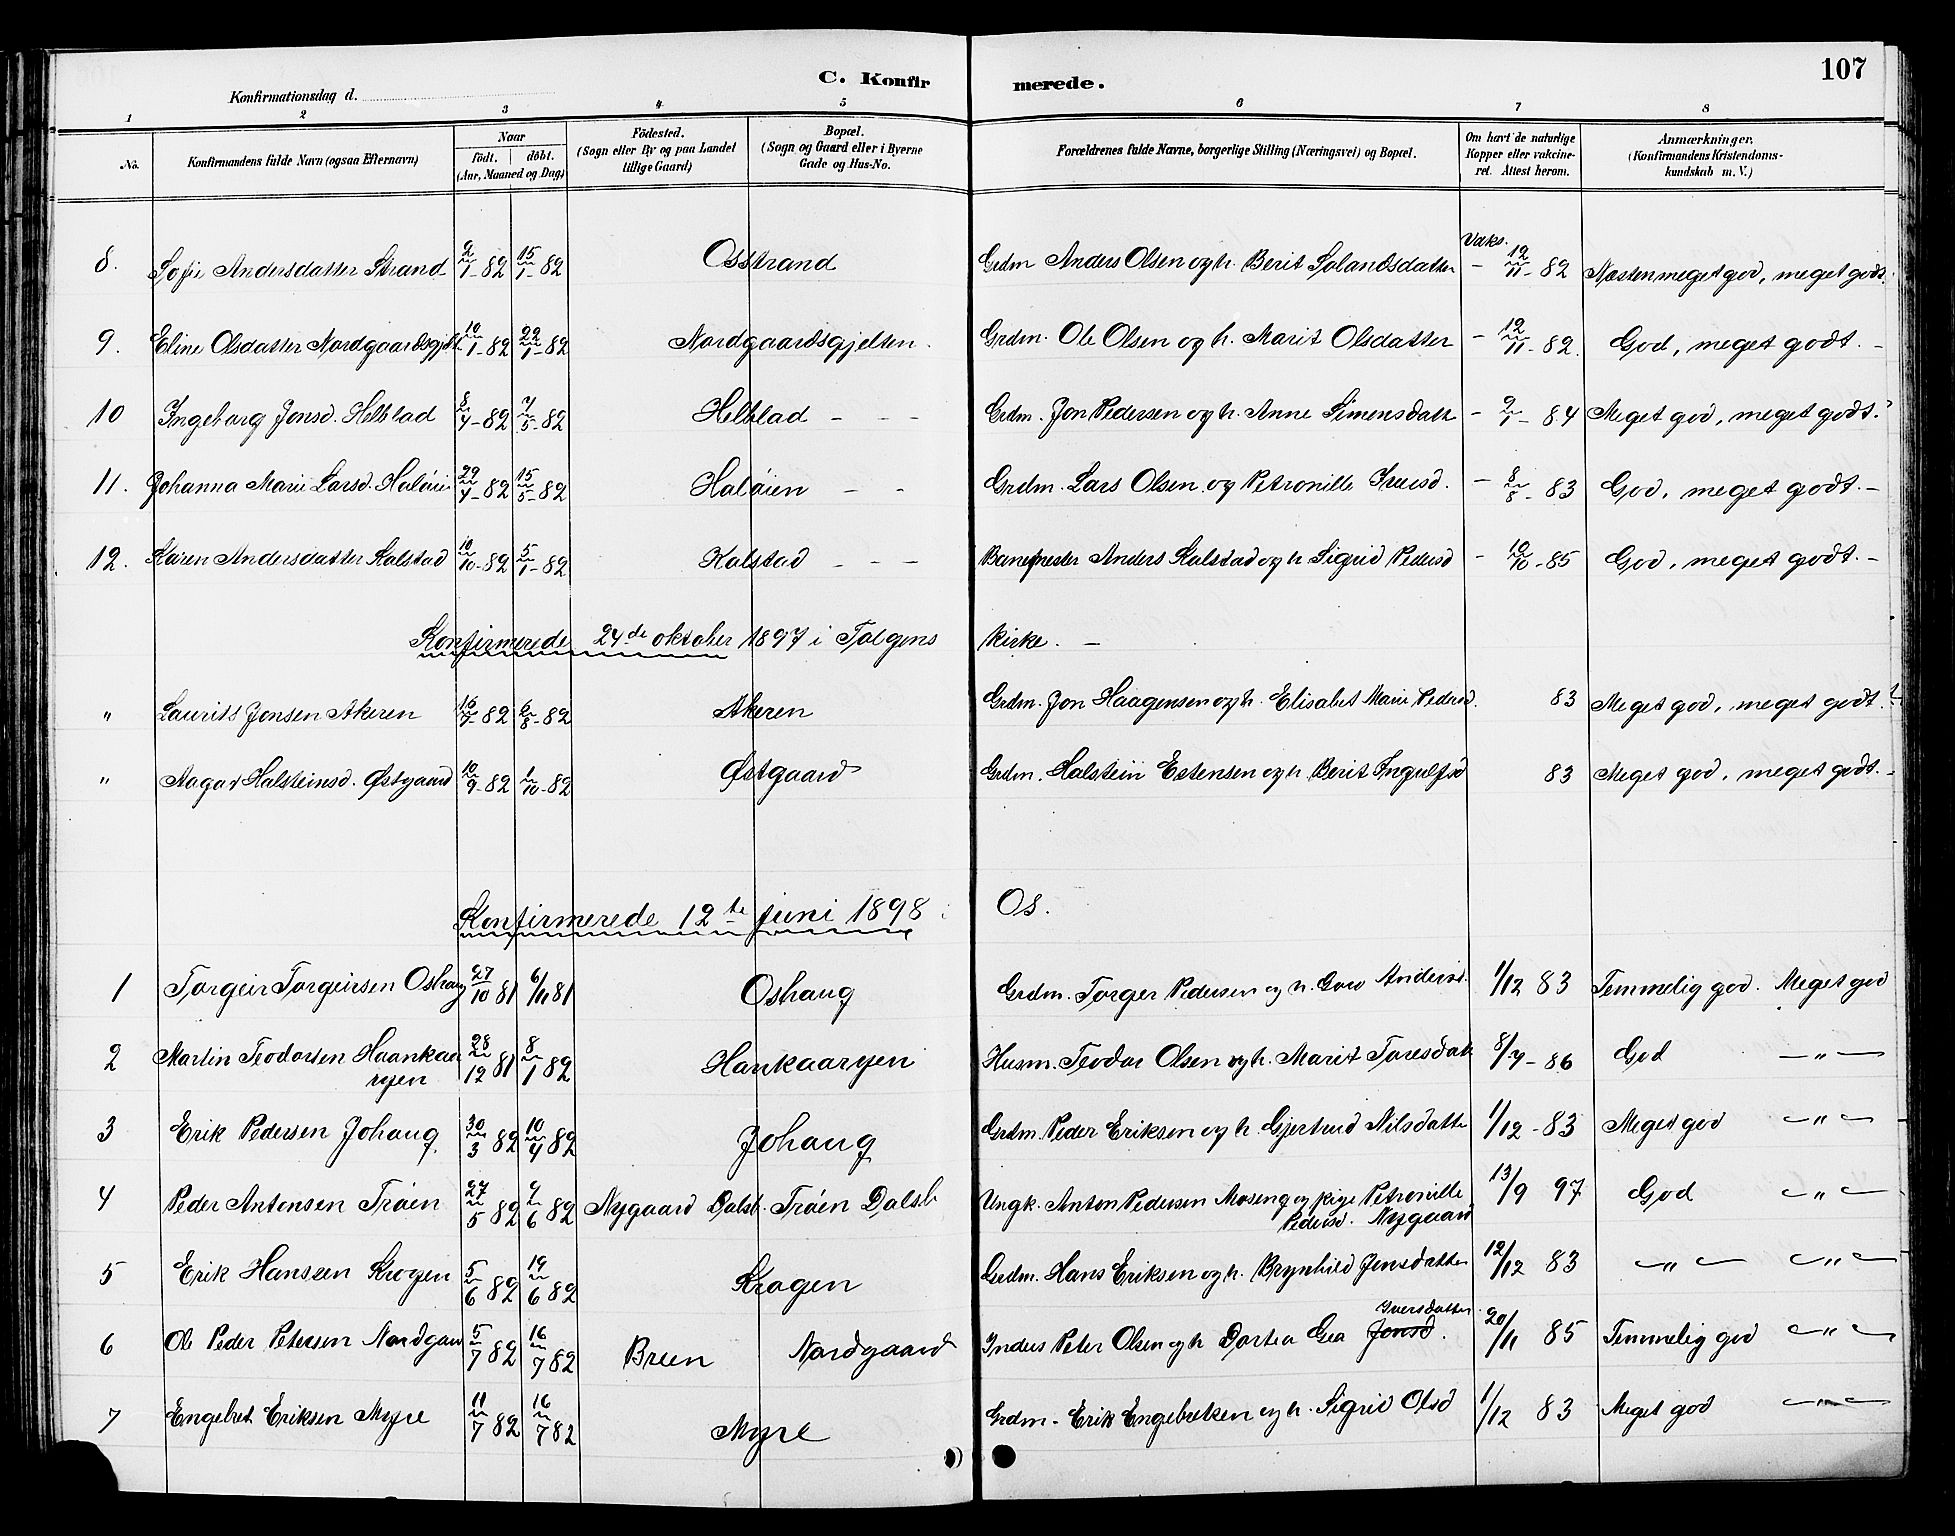 107
C. Konfirmerede.
Konfirmationsdag d.
1 2 3 4 5 6 7 8
No. Konfirmandens fulde Navn (ogsaa Efternavn) Naar födt. döbt. (Aar, Maaned og Dag) Födested. (Sogn eller By og paa Landet tillige Gaard) Bopæl. (Sogn og Gaard eller i Byerne Gade og Hus-No. Forældrenes fulde Navne, borgerlige Stilling (Næringsvei) og Bopæl. Om havt de naturlige Kopper eller vakcineret. Attest herom. Anmærkninger. (Konfirmandens Kristendomskundskab m. V.)
8. Sofie Andersdatter Strand 2/1-82 15/1-82 Osstrand Grdm Anders Olsen og h. Berit Jolandsdatter Vaks. - 12/11-82 Næsten meget god, meget godt.
9. Eline Olsdatter Nordgaardsgjelt 10/1-82 22/1-82 Nordgaardsgjelten. Grdm. Ole Olsen og h. Marit Olsdatter - 12/11-82. God, meget godt. -
10 Ingeborg Jonsd. Helblad 8/4-82 7/5-82 Helblad - - - Grdm. Jon Pedersen og h. Anne Simensdatt - 9/1-84 Meget god, meget godt.
11. Johanna Marie Larsd. Haløien 29/4-82 15/5-82 Haløien - - Grdm. Lars Olsen og Petronille Iversd. - 8/8-83 God, meget godt. -
12. Karen Andersdatter Kalstad 10/10-82 5/1-82 Kalstad - - - Banemester Anders Kalstad og h Sigrid Pedersd - 10/10-85 God, meget godt. -
Konfirmerede 24de oktober 1897 i Tolgens Kirke. -
" Laurits Jonsen Akeren 16/7-82 6/8-82 Akeren Grdm. Jon Haagensen og h. Elisabet Marie Pedersd. 83 Meget god, meget godt.
" Aagot Halsteinsd. Østgaard 10/9-82 1/10-82 Østgaard Grdm. Halstein Estensen og h Berit Ingulfsd 83 Meget god, meget godt. -
Konfirmerede 12te juni 1898 i Os.
1 Torgeir Torgeirsen Oshaug 27/10 81 6/11 81 Oshaug Grdm. Torger Pedersen og h. Goro Andersd. 1/12 83 Temmelig god. Meget god
2 Martin Teodorsen Haankaaryen 28/12 81 8/1 82 Hankaaryen Husm. Teodor Olsen og h. Marit Toresdatt 8/7-86 God - " -
3 Erik Pedersen Johaug 30/3 82 10/4 82 Johaug Grdm. Peder Eriksen og h. Gjertrud Nilsdatter 1/12-83 Meget god - " -
4 Peder Antonsen Trøen 27/5 82 9/6 82 Nygaard Dalsb. Trøen Dalsb Ungk. Anton Pedersen Moseng og pige Petronille Pedersd. Nygaard 13/9 97 God - " -
5 Erik Hansen Krogen 5/6 82 19/6 82 Krogen Grdm. Hans Eriksen og h. Brynhild Jonsdatter 12/12 83 - " - - " -
6 Ole Peder Petersen Nordgaar 5/7 82 16/7 82 Breen Nordgaard Inders Peter Olsen og h Dortea Gea Jonsd. Iversdatter 20/11 85 Temmelig god - " -
7 Engebret Eriksen Myre 11/7 82 16/7 82 Myre Grdm. Erik Engebretsen og h. Sigrid Olsd 1/12 83 Meget god - " -